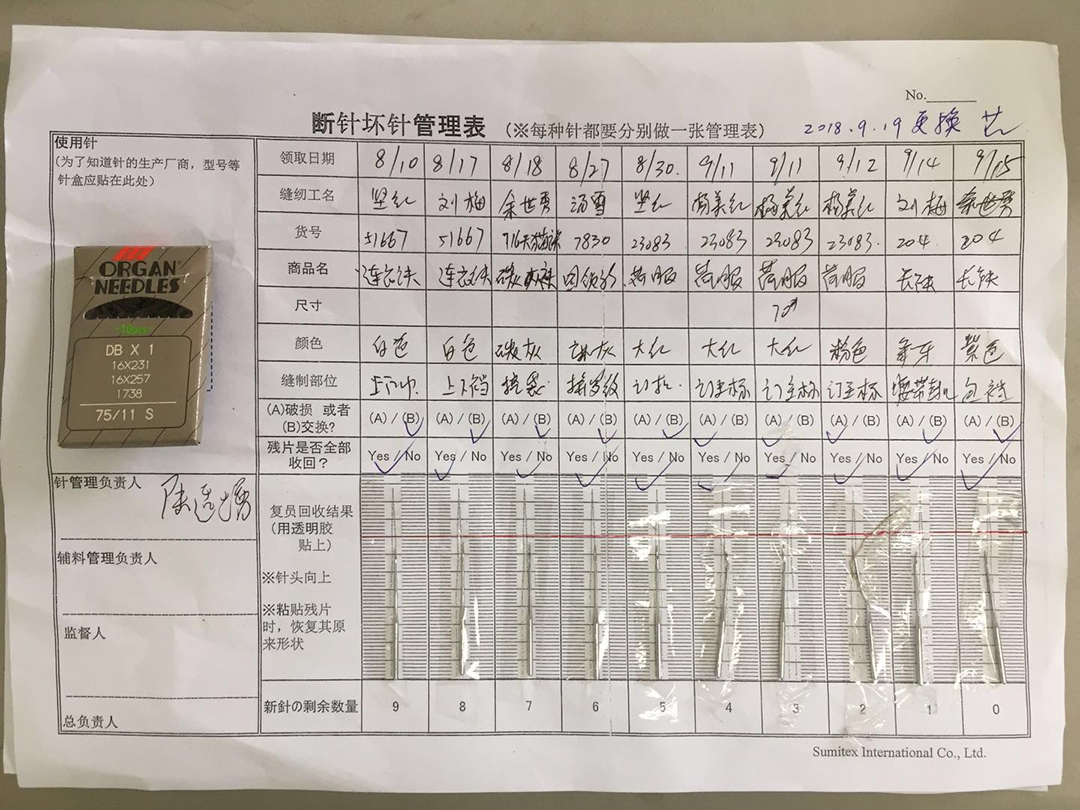 No.
断针坏针管理表 (※每种针都要分别做一张管理表) 2018.9.19 更换
使用针
(为了知道针的生产厂商，型号等
针盒应贴在此处)
ORGAN
NEEDLES
DB X 1
16X231
16X257
1738
75/11 S
针管理负责人
辅料管理负责人
监督人
总负责人
领取日期 8/10 8/17 8/18 8/27 8/30. 9/11 9/11 9/12 9/14 9/15
缝纫工名 刘梅 余世勇 汤雪 杨美红 杨美红 杨美红 刘梅 余世勇
货号 51667 51667 7830 23083 23083 23083 23083. 204. 204
商品名 连衣裙 连衣裙
尺寸
颜色 白色 白色 大红 大红 大红 粉色 紫色
缝制部位 订主标 订主标 订主标
(A)破损 或者
(B)交换? (A) / (B) (A) / (B) (A) / (B) (A) / (B) (A) / (B) (A) / (B) (A) / (B) (A) / (B) (A) / (B) (A) / (B)
残片是否全部
收回？ Yes / No Yes / No Yes / No Yes / No Yes / No Yes / No Yes / No Yes / No Yes / No Yes / No
复员回收结果
(用透明胶
贴上)
※针头向上
※粘贴残片
时，恢复其原
来形状
新針の剩余数量 9 8 7 6 5 4 3 2 1 0
Sumitex International Co., Ltd.